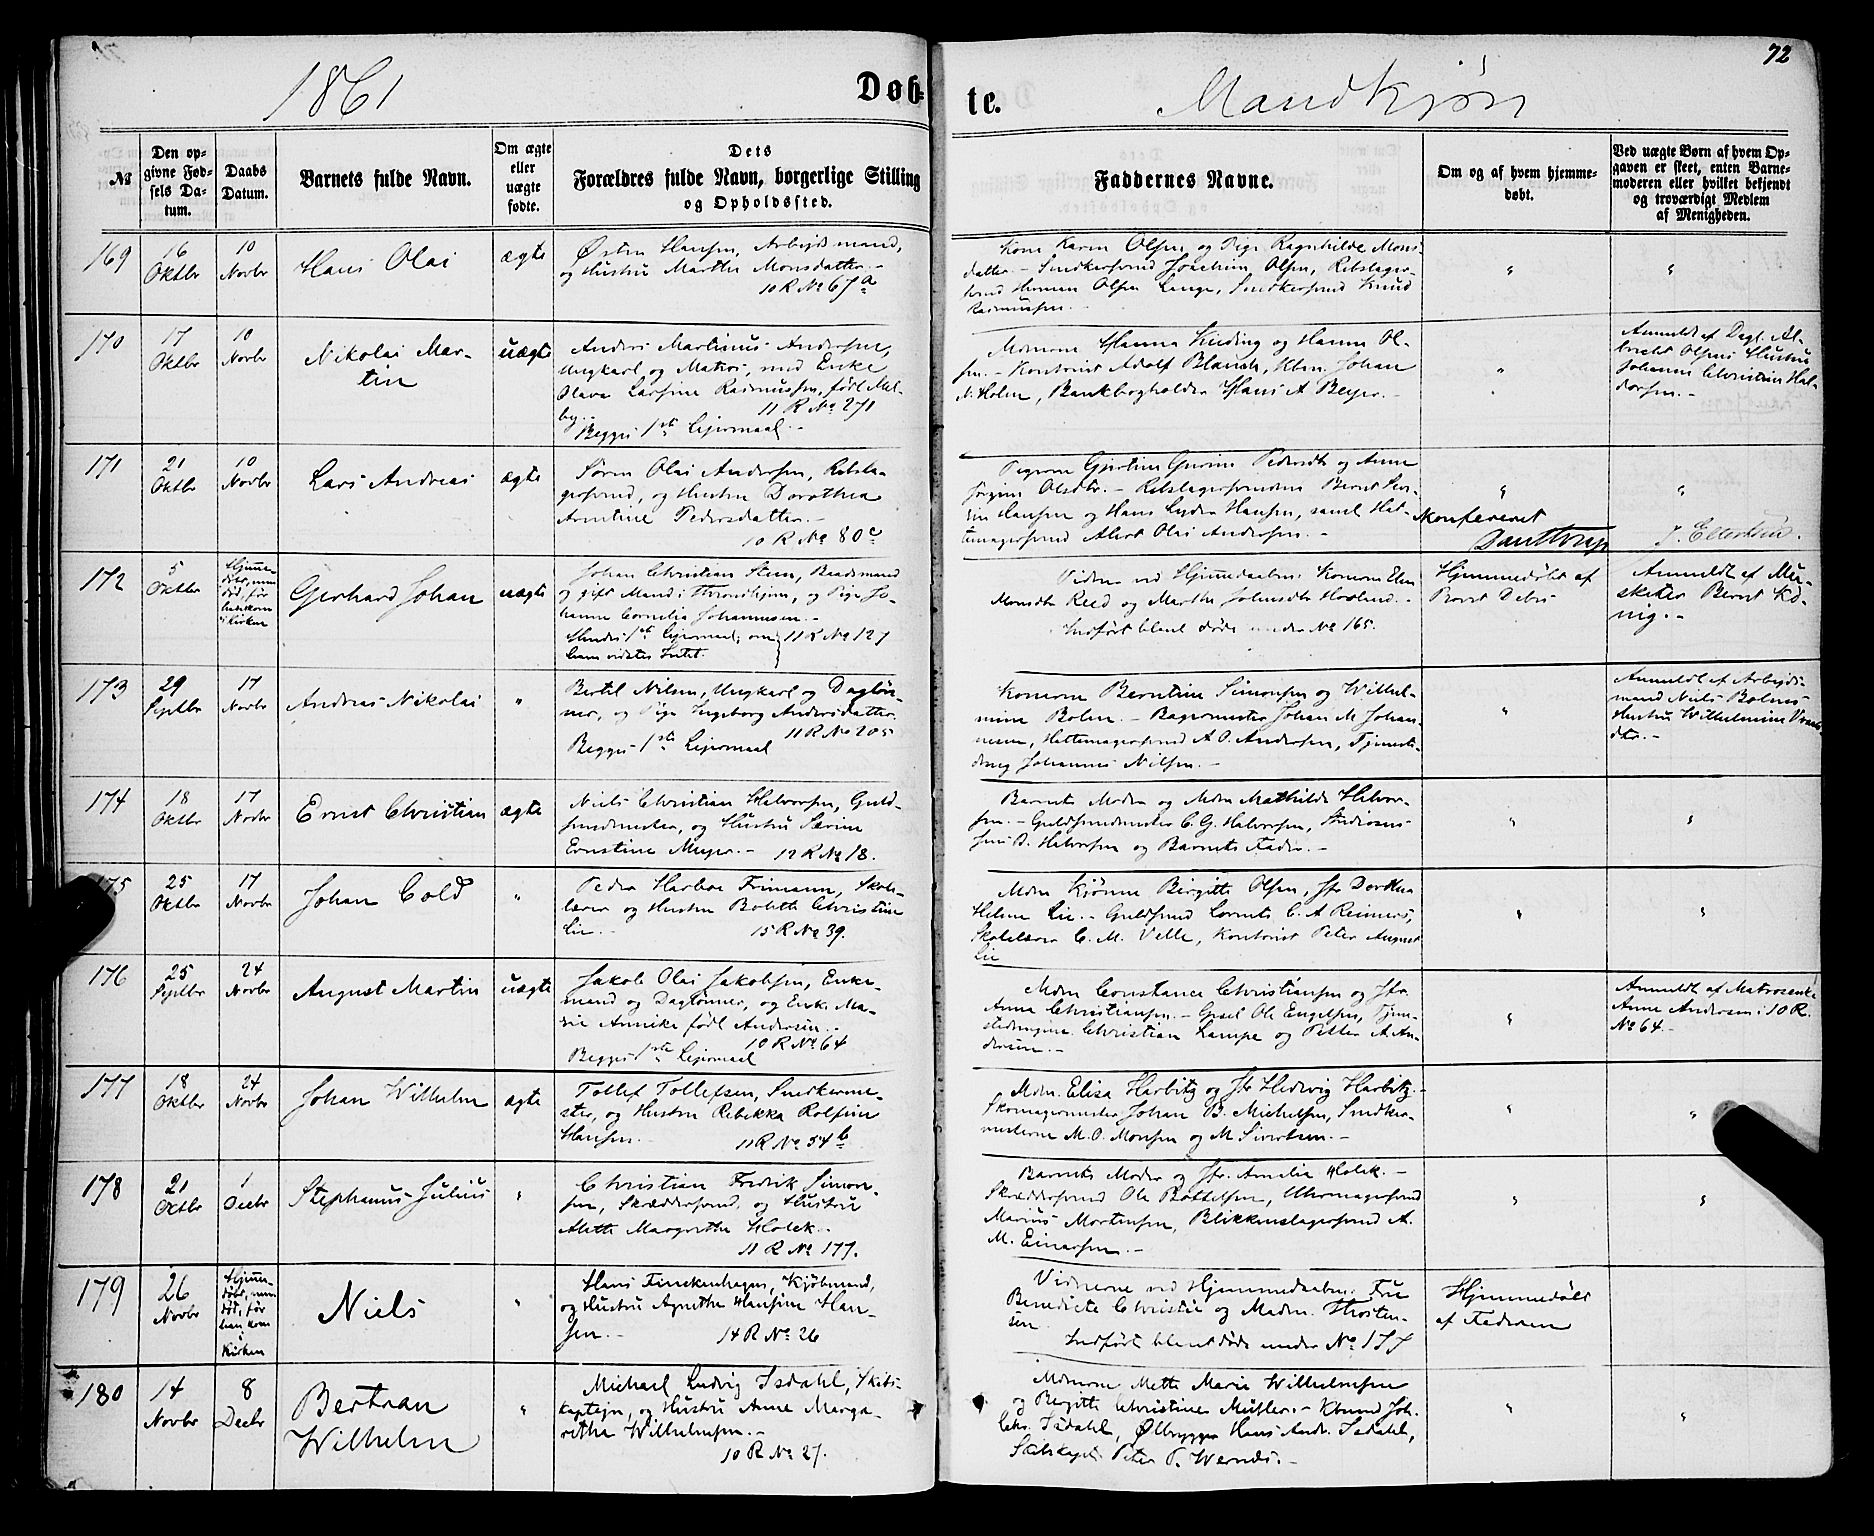 72
1861
Døb-
te.
Mandkjøn
№
Den op-
givne Fød-
sels Da-
tum.
Daabs
Datum.
Barnets fulde Navn.
Om ægte
eller
uægte
fødte.
Dets
Forældres fulde Navn, borgerlige Stilling
og Opholdssted.
Faddernes Navne.
Om og af hvem hjemme-
døbt.
Ved uægte Børn af hvem Op-
gaven er skeet, enten Barne-
moderen eller hvilket bekjendt
og troværdigt Medlem
af Menigheden.
169
16
Oktbr
10
Novbr
Hans Olai
ægte
Østen Hansen, Arbejdsmand,
og Hustru Marthe Monsdatter.-
10 R No 67 a
Kone Karen Olsen, og Pige Ragnhilde Mons-
datter.- Snedkersvend Joachim Olsen, Rebslager-
svend Herman Olsen Lunge, Snedkersvend Knud
Rasmussen.-
"
"
170
17
Oktbr
10
Novbr
Nikolai Mar-
tin
uægte
Anders Martinus Andersen,
Ungkarl og Matros, med Enke
Olava Larsine Rasmussen, født Mel-
by.- 11 R No 271
Begges 1ste Lejermaal.-
Mdmerne Hanna Kinding og Hanna Ol-
sen.- Kontorist Adolf Blanch, Kbm. Johan
N. Holm, Bankbogholder Hans A Beyer.-
"
Anmeldt af Dagl. Al-
brecht Olsens Hustru
Johanne Christine Hal-
dorsen.-
171
21
Oktbr
10
Novbr
Lars Andreas
ægte
Søren Olai Andersen, Rebsla-
gersvend, og Hustru Dorothea
Arentine Pedersdatter.-
10 R No 80 c
Pigerne Gjertine Gurine Pedersdtr og Anne
Jørgine Olsdtr.- Rebslagersvendene Bernt Se-
rin Hansen og Hans Lyder Hansen, samt Hat-
temagersvend Albert Olai Andersen.-
"
"
Konfereret
Daustrup
J. Ellertsen.
172
5
Oktbr
Hjemme-
døbt, men
død, før
han kom
i Kirken
Gerhard Johan
uægte
Johan Christian Steen, Baadsmand
og gift Mand i Throndhjem, og Pige Jo-
hanne Cornelia Johannesen.-
Hendes 1ste Lejermaal, om 11 R No 127
ham vidstes Intet.
Vidner ved Hjemmedaaben: Konerne Elen
Monsdtr Reed og Marthe Johnsdtr Hovland.-
Indført blant døde under No 165.
Hjemmedøbt af
Provst Debes
Anmeldt af Mu-
sketer Bernt Kø-
nig.-
173
29
Septbr
17
Novbr
Andreas Nikolai
"
Bertel Nilsen, Ungkarl og Dagløn-
ner, og Pige Ingeborg Andersdatter.
11 R No 205
Begges 1ste Lejermaal
Konerne Berntine Simonsen og Wilhel-
mine Bolen.- Bagermester Johan M. Johan-
nesen, Hattemagersvend A O. Andersen, Tjeneste-
dreng Johannes Nilsen.-
"
Anmeldt af Arbejds-
mand Niels Bolens
Hustru Wilhelmine
dtr.-
174
18
Oktbr
17
Novbr
Ernst Christian
ægte
Niels Christian Halvorsen, Guld-
smedmester, og Hustru Serine
Ernstine Meyer.- 12 R No 18.
Barnets Moder og Mdm Mathilde Halvor-
sen.- Guldsmedmester C. G. Halvorsen,
D. Halvorsen og Barnets Fader.-
"
"
175
25
Oktbr
17
Novbr
Johan Cold
"
Peder Harboe Frimann, Skole-
lærer og Hustru Bolette Christine
Lie.- 15 R No 39.
Mdm Kjønne Birgitte Olsen, Jfr Dorthea
Helene Lie.- Guldsmed Lorents C. A Reimers,
Skolelærer C. M. Velle, Kontorist Peter August
Lie
"
"
176
25
Septbr
24
Novbr
August Martin
uægte
Jakob Olai Jakobsen, Enke-
mand og Daglønner, og Enke Ma-
rie Annike født Andersen.-
10 R No 64
Begges 1ste Lejermaal
Mdm Constance Christiansen og Jfr.
Anna Christiansen.- Gesel Ole Engelsen, Tjene-
stedrengene Christian Lampe og Petter A An-
dersen.-
"
Anmeldt af Matrosenke
Anne Andersen i 10 R.
No 64.-
177
18
Oktbr
24
Novbr
Johan Wilhelm
ægte
Tollef Tollefsen, Snedkerme-
ster, og Hustru Rebekka Rolfine
Hansen. 11 R No 54 b
Mdm. Elisa Harbitz og Jfr Hedvig Harbitz.-
Skomagermester Johan B. Michelsen, Snedker-
mesterne M. O. Monsen og M Sivertsen.-
"
"
178
21
Oktbr
1
Decbr
Stephanus Julius
"
Christian Fredrik Simon-
sen, Skræddersvend, og Hustru
Alette Margrethe Holck.-
11 R No 177.
Barnets Moder og Jfr. Amalia Holck.-
Skræddersvend Ole Bottelsen, Uhrmagersvend
Marius Mortensen, Blikkenslagersvend A.
M. Einarsen.-
"
"
179
26
Novbr
Hjemme-
døbt, men
død, før
han kom
i
Kirken
Niels
"
Hans Finckenhagen, Kjøbmand,
og Hustru Agnethe Hansine Han-
sen.- 14 R No 26
Vidnerne ved Hjemmedaaben: Fru
Benedicte Christie og Madm. Thorsten-
sen
Indført blant døde under No 177
Hjemmedøbt
af Faderen
180
14
Novbr
8
Decbr
Bertran
Wilhelm
"
Michael Ludvig Isdahl, Skibs-
kaptejn, og Hustru Anne Marga-
rethe Wilhelmsen.-
10 R No 27.
Mdmerne Mette Marie Wilhelmsen
og Birgitte Christine Müller.- Kbmd Joh.
Chr. Isdahl, Ølbrygger Hans Andr. Isdahl,
Skibskapt. Peter P. Wernds.-
"
"